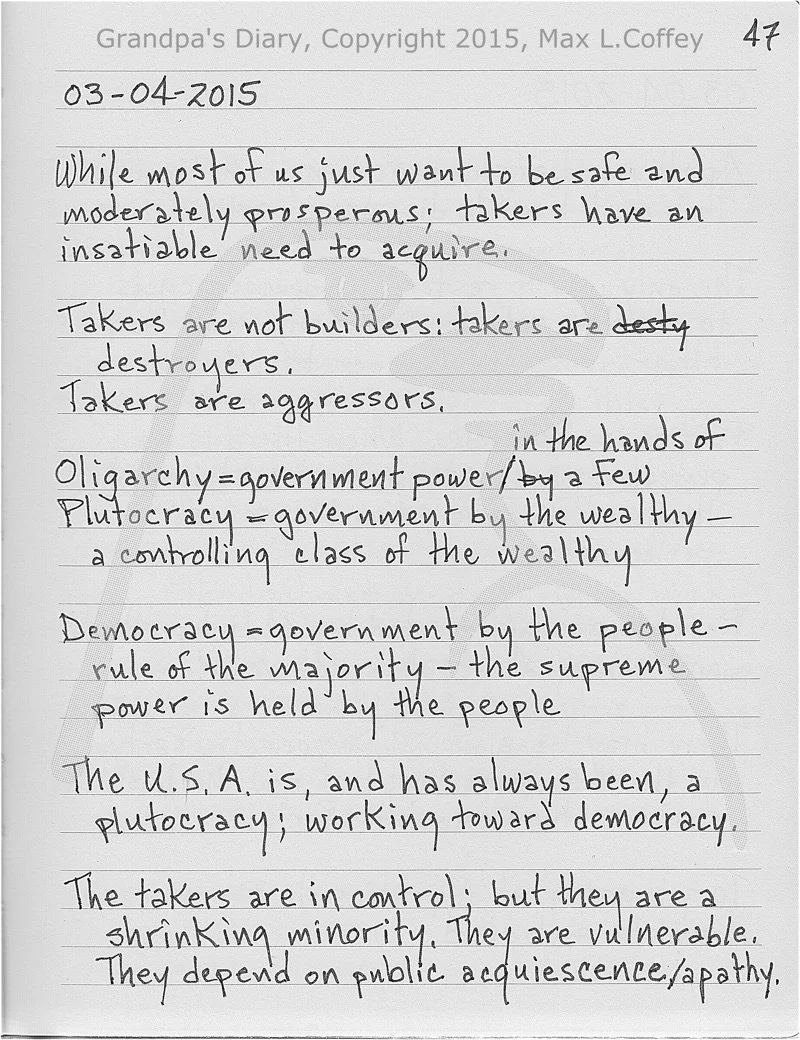 Grandpa's Diary, Copyright 2015, Max L.Coffey 47
03-04-2015
While most of us just want to be safe and
moderately prosperous; takers have an
insatiable need to acquire.
Takers are not builders: takers are desty
destroyers.
Takers are aggressors.
in the hands of
Oligarchy=government power/by a few
Plutocracy=government by the wealthy—
a controlling class of the wealthy
Democracy=government by the people—
rule of the majority—the supreme
power is held by the people
The U.S.A. is, and has always been, a
plutocracy; working toward democracy.
The takers are in control; but they are a
shrinking minority. They are vulnerable.
They depend on public acquiescence/apathy.